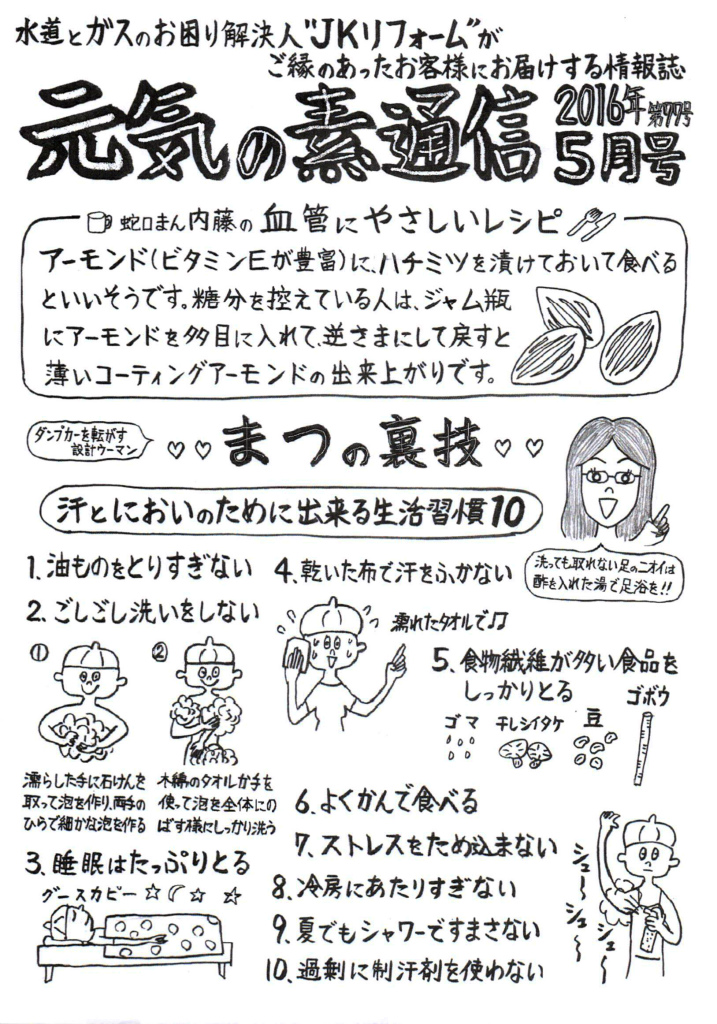 水道とガスのお困り解決人"JKリフォーム"が
ご縁のあったお客様にお届けする情報誌
元気の素通信
2016年 第77号
5月号
蛇口まん内藤の 血管にやさしいレシピ
アーモンド(ビタミンEが豊富)に、ハチミツを漬けておいて食べる
といいそうです。糖分を控えている人は、ジャム瓶
にアーモンドを多目に入れて、逆さまにして戻すと
薄いコーティングアーモンドの出来上がりです。
ダンプカーを転がす
設計ウーマン
♡♡まつの裏技♡♡
汗とにおいのために出来る生活習慣10
洗っても取れない足のニオイは
酢を入れた湯で足浴を!!
1、油ものをとりすぎない
2、ごしごし洗いをしない
①
②
濡らした手に石けんを
取って泡を作り、両手の
ひらで細かな泡を作る
木綿のタオルか手を
使って泡を全体にの
ばす様にしっかり洗う
3、睡眠はたっぷりとる
グースカピー☆☾☆ ☆
4、乾いた布で汗をふかない
濡れたタオルで♫
5、食物繊維が多い食品を
しっかりとる
ゴマ
干しシイタケ
豆
ゴボウ
6、よくかんで食べる
7、ストレスをため込まない
8、冷房にあたりすぎない
9、夏でもシャワーですまさない
10、過剰に制汗剤を使わない
シュ〜
シュ〜
シュ〜